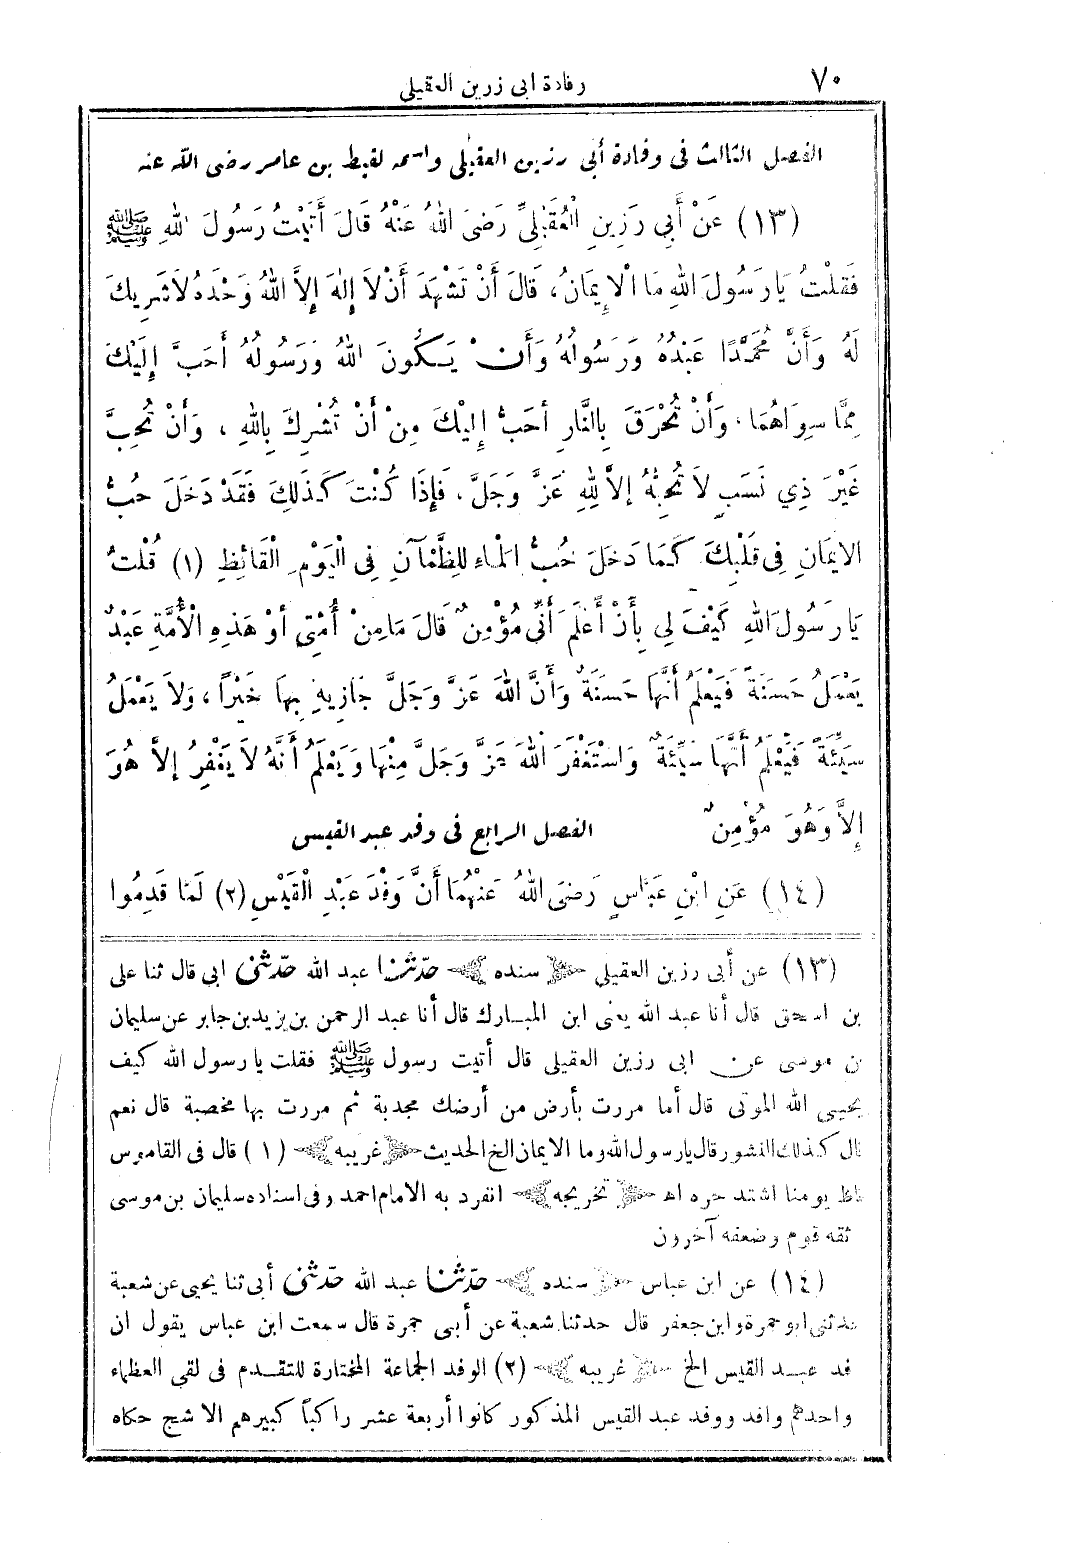 ٧٠
رفادة ابى زرين العقيلى
الفصل الثالث فى وفادة أبى رزين العقيلى واسمه لقيط بن عامر رضى الله عنه
(١٣) عَنْ أَبِي رَزِينٍ الْعُقَيْلِيِّ رَضِىَ اللهُ عَنْهُ قَالَ أَتَيْتُ رَسُولَ اللهِ ﷺ
فَقُلْتُ يَارَسُولَ اللهِ مَا الْإِيمَانُ، قَالَ أَنْ تَشْهَدَ أَنْ لاَ إِلٰهَ إِلاَّ اللهُ وَحْدَهُ لاَشَرِيكَ
لَهُ وَأَنَّ مُحَمَّدًا عَبْدُهُ وَرَسُولُهُ وَأَنْ يَكُونَ اللهُ وَرَسُولُهُ أَحَبَّ إِلَيْكَ
مِمَّا سِوَاهُمَا، وَأَنْ تُحْرَقَ بِالنَّارِ أَحَبُّ إِلَيْكَ مِنْ أَنْ تُشْرِكَ بِاللهِ، وَأَنْ تُحِبَّ
غَيْرَ ذِي نَسَبٍ لاَ تُحِبُّهُ إِلاَّ لِلهِ عَزَّ وَجَلَّ، فَإِذَا كُنْتَ كَذَلِكَ فَقَدْ دَخَلَ حُبُّ
الايمَانِ فِى قَلْبِكَ كَمَا دَخَلَ حُبُّ الْمَاءِ لِلظَّمْآنِ فِى الْيَوْمِ الْقَائِظِ (١) قُلْتُ
يَارَسُولَ اللهِ كَيْفَ لِي بِأَنْ أَعْلَمَ أَنِّى مُؤْمِنٌ قَالَ مَامِنْ أُمَّتِى أَوْ هَذِهِ الْأُمَّةِ عَبْدٌ
يَعْمَلُ حَسَنَةً فَيَعْلَمُ أَنَّهَا حَسَنَةٌ وَأَنَّ اللهَ عَزَّ وَجَلَّ جَازِيهِ بِهَا خَيْرًا، وَلاَ يَعْمَلُ
سَيِّئَةً فَيَعْلَمُ أَنَّهَا سَيِّئَةٌ وَاسْتَغْفَرَ اللهَ عَزَّ وَجَلَّ مِنْهَا وَيَعْلَمُ أَنَّهُ لاَ يَغْفِرُ إِلاَّ هُوَ
إِلاَّ وَهُوَ مُؤْمِنٌ
الفصل الرابع فى وفد عبد القيس
(١٤) عَنِ ابْنِ عَبَّاسٍ رَضِىَ اللهُ عَنْهُمَا أَنَّ وَفْدَ عَبْدِ الْقَيْسِ (٢) لَمَّا قَدِمُوا
(١٣) عن أبى رزين العقيلي ﴿ سنده ﴾ حدثنا عبد الله حدثنى ابى قال ثنا على
بن اسحق قال أنا عبد الله يعنى ابن المبارك قال أنا عبد الرحمن بن يزيد بن جابر عن سليمان
ن موسى عن ابى رزين العقيلى قال أتيت رسول ﷺ فقلت يارسول الله كيف
يحيى الله الموتى قال أما مررت بأرض من أرضك مجدبة ثم مررت بها مخصبة قال نعم
ال كذلك النشور قال يارسول الله وما الايمان الخ الحديث ﴿ غريبه ﴾ (١) قال فى القاموس
اظ يومنا اشتد حره اه ﴿ تخريجه ﴾ انفرد به الامام احمد وفى اسناده سليمان بن موسى
ثقه قوم وضعفه آخرون
(١٤) عن ابن عباس ﴿ سنده ﴾ حدثنا عبد الله حدثنى أبى ثنا يحيى عن شعبة
حدثنى ابو جمرة وابن جعفر قال حدثنا شعبة عن أبى جمرة قال سمعت ابن عباس يقول ان
فد عبد القيس الخ ﴿ غريبه ﴾ (٢) الوفد الجماعة المختارة للتقدم فى لقى العظماء
واحدهم وافد ووفد عبد القيس المذكور كانوا أربعة عشر راكباً كبيرهم الاشج حكاه